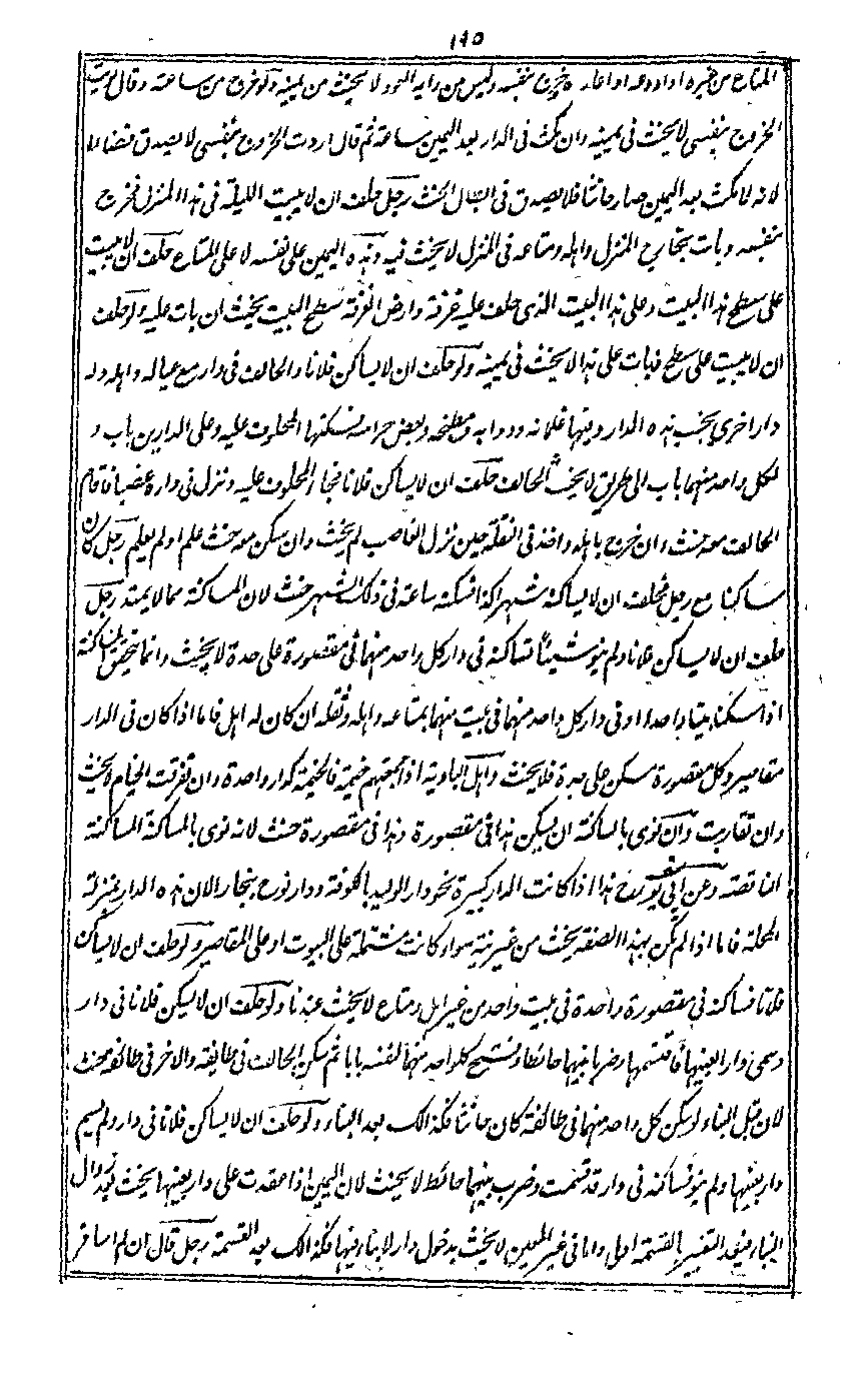 ١٩٥
المتاع من غيره او اودعه او اعاره وخرج بنفسه وليس من رايه العود لا يحنث من يمينه ولو خرج من ساعته وقال نويت
الخروج بنفسى لا يحنث فى يمينه وان مكث فى الدار بعد اليمين ساعة ثم قال اردت الخروج بنفسى لا يصدق قضاء
لانه لما مكث بعد اليمين صار حانثا فلا يصدق فى ابطال الحنث رجل حلف ان لا يبيت الليلة فى هذا المنزل فخرج
بنفسه وبات بخارج المنزل واهله ومتاعه فى المنزل لا يحنث فيه وهذه اليمين على نفسه لا على المتاع حلف ان لا يبيت
على سطح هذا البيت وعلى هذا البيت الذى حلف عليه غرفة وارض الغرفة سطح البيت يحنث ان بات عليه ولو حلف
ان لا يبيت على سطح فبات على هذا لا يحنث فى يمينه ولو حلف ان لا يساكن فلانا والحالف فى دار مع عياله واهله وله
دار اخرى بجنب هذه الدار وفيها غلمانه ودوابه ومطبخه وبعض حرامه فسكنها المحلوف عليه وعلى الدارين باب و
لكل واحد منهما باب الى طريق لا يحنث الحالف حلف ان لا يساكن فلانا فجاء المحلوف عليه ونزل فى داره غصبا فاقام
الحالف معه حنث وان خرج باهله واخذ فى النقلة حين نزل الغاصب لم يحنث وان سكن معه حنث علم او لم يعلم رجل كان
ساكنا مع رجل فحلف ان لا يساكنه شهر كذا فسكنه ساعة فى ذلك الشهر حنث لان المساكنة مما لا يمتد رجل
حلف ان لا يساكن فلانا ولم ينو شيئا فساكنه فى دار كل واحد منهما فى مقصورة على حدة لا يحنث وانما يتحقق المساكنة
اذا سكنا بيتا واحدا او فى دار كل واحد منهما فى بيت منهما بمتاعه واهله وثقله ان كان له اهل فاما اذا كان فى الدار
مقاصير وكل مقصورة مسكن على حدة فلا يحنث واهل البادية اذا جمعتهم خيمة فالخيمة كدار واحدة وان تفرقت الخيام لا يحنث
وان تقاربت وان نوى بالمساكنة ان يسكن هذا فى مقصورة وهذا فى مقصورة حنث لانه نوى بالمساكنة المساكنة
الناقصة وعن ابى يوسف رح هذا اذا كانت الدار كبيرة نحو دار الوليد بالكوفة ودار نوح ببخارا لان هذه الدار بمنزلة
المحلة فاما اذا لم تكن بهذه الصفة يحنث من غير نية سواء كانت مشتملة على البيوت او على المقاصير ولو حلف ان لا يساكن
فلانا فساكنه فى مقصورة واحدة فى بيت واحد من غير اهل ومتاع لا يحنث عندنا ولو حلف ان لا يسكن فلانا فى دار
وسمى دارا بعينها فاقتسمها وضربا بينهما حائطا وفتح كل واحد منهما لنفسه بابا ثم سكن الحالف فى طائفة والاخر فى طائفة حنث
لان قبل البناء لو سكن كل واحد منهما فى طائفة كان حانثا فكذلك بعد البناء ولو حلف ان لا يساكن فلانا فى دار ولم يسم
دار بعينها ولم ينو فساكنه فى دار قد قسمت وضرب بينهما حائط لا يحنث لان اليمين اذا عقدت على دار بعينها يحنث بعد زوال
البناء فبعد التغيير بالقسمة اولى واما فى غير المعين لا يحنث بدخول دار لا بناء فيها فكذلك بعد القسمة رجل قال ان لم اسافر